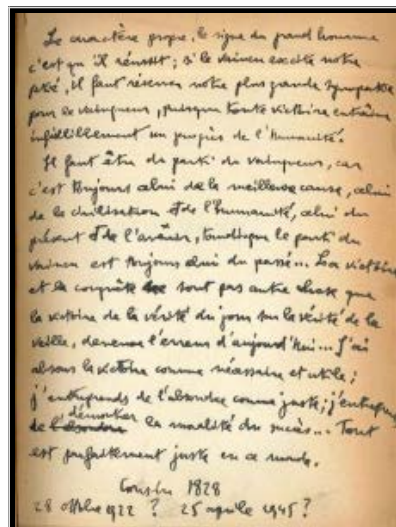 Le caractère propre, le signe du grand homme
c'est qu'il réussit ; si le vaincu excite notre
pitié, il faut réserver notre plus grande sympathie
pour le vainqueur, puisque toute victoire entraîne
infailliblement un progrès de l'humanité.
Il faut être du parti du vainqueur, car
c'est toujours celui de la meilleure cause, celui
de la civilisation et de l'humanité, celui du
présent et de l'avenir, tandis que le parti du
vaincu est toujours celui du passé... La victoire
et la conquête ne sont pas autre chose que
la victoire de la vérité du jour sur la vérité de la
veille, devenue l'erreur d'aujourd'hui... J'ai
absous la victoire comme nécessaire et utile ;
j'entreprends de l'absoudre comme juste ; j'entreprends
de l'absoudre démontrer la moralité du succès... Tout
est parfaitement juste en ce monde.
Cousin 1828
28 ottobre 1922 ? 25 aprile 1945 ?